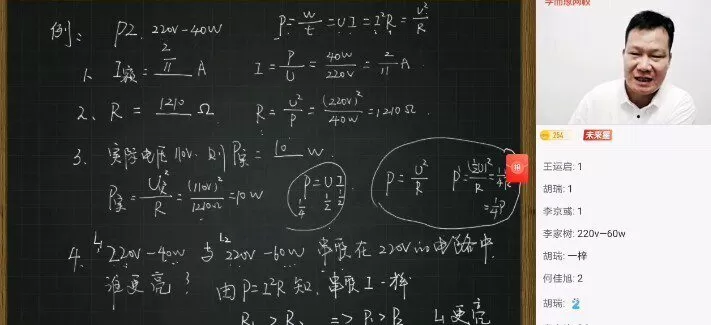 例: PZ 220V-40W P=W/t=UI=I²R=U²/R
1、I额=2/11 A I=P/U=40W/220V=2/11 A
2、R=1210 Ω R=U²/P=(220V)²/40W=1210Ω
3、实际电压110V,则P实=10 W
P实=U实²/R=(110V)²/1210Ω=10W P=UI 1/4 1/2 1/2 P=U²/R P'=(1/2U)²/R=1/4U²/R
=1/4P
4、L1 220V-40W 与 L2 220V-60W 串联在220V的电路中,
谁更亮? 由P=I²R知,串联I一样
R1>R2 => P1>P2 L1更亮
254 未来星
王运启: 1
胡瑞: 1
李京彧: 1
李家树: 220v一60w
胡瑞: 一梓
何佳旭: 2
胡瑞: 2